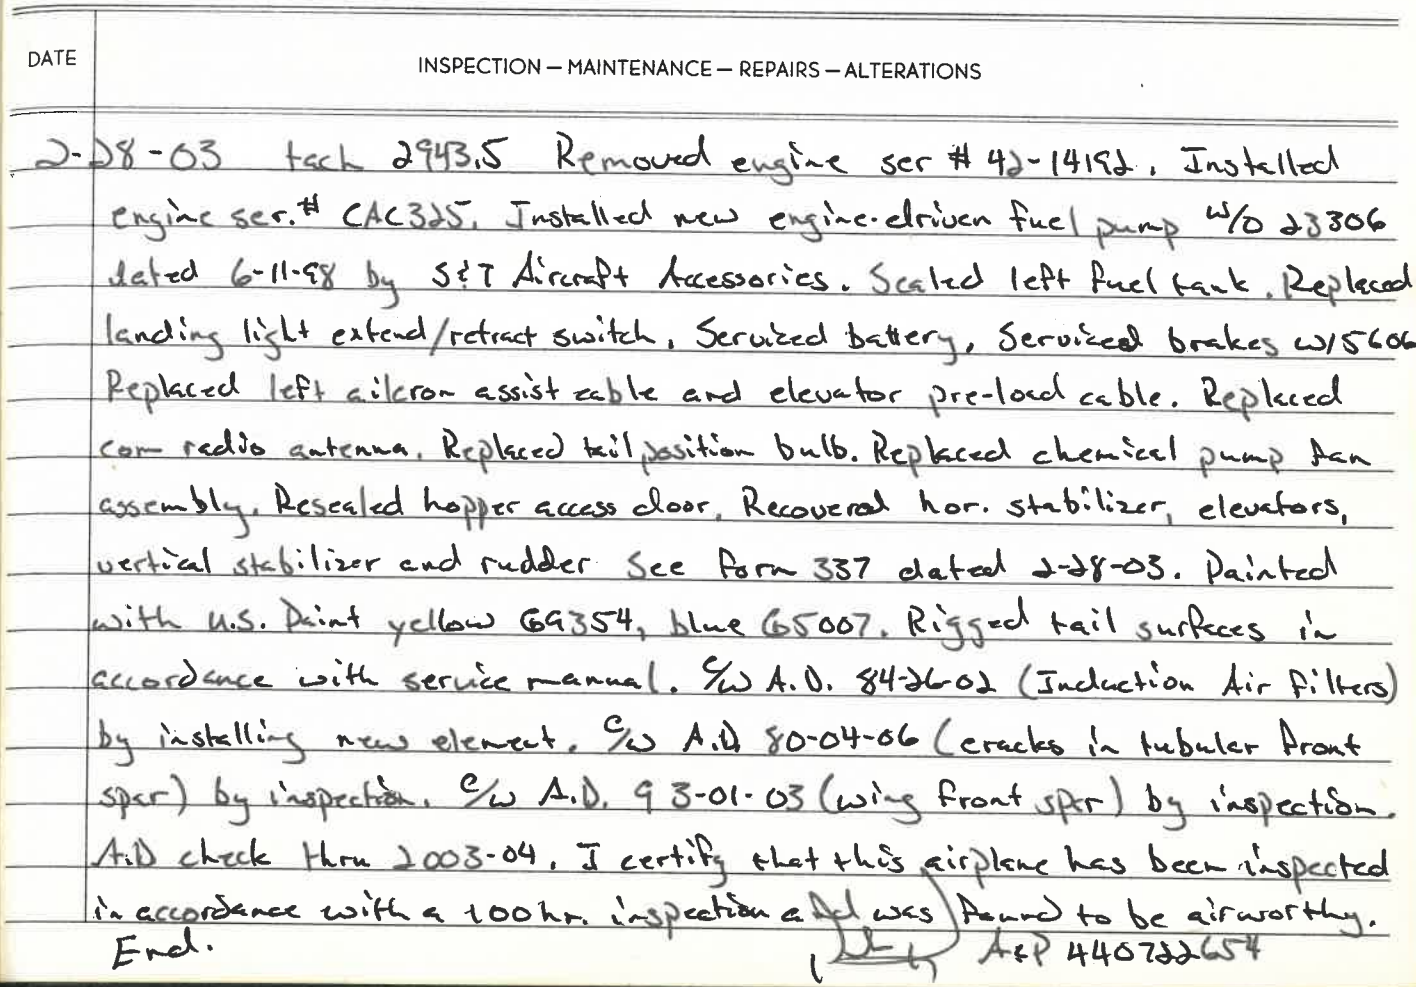 DATE
INSPECTION — MAINTENANCE — REPAIRS — ALTERATIONS
2-28-03 tach 2943.5 Removed engine ser # 42-14192. Installed
engine ser.# CAC325. Installed new engine-driven fuel pump W/O 23306
dated 6-11-98 by S&T Aircraft Accessories. Sealed left fuel tank. Replaced
landing light extend/retract switch. Serviced battery, Serviced brakes w/5606
Replaced left aileron assist cable and elevator pre-load cable. Replaced
com radio antenna. Replaced tail position bulb. Replaced chemical pump fan
assembly. Resealed hopper access door. Recovered hor. stabilizer, elevators,
vertical stabilizer and rudder See form 337 dated 2-28-03. Painted
with U.S. Paint yellow G9354, blue G5007. Rigged tail surfaces in
accordance with service manual. C/W A.D. 84-26-02 (Induction Air Filters)
by installing new element. C/W A.D. 80-04-06 (cracks in tubular front
spar) by inspection. C/W A.D. 93-01-03 (wing front spar) by inspection.
A.D check thru 2003-04. I certify that this airplane has been inspected
in accordance with a 100 hr. inspection and was found to be airworthy.
End. A&P 440722654